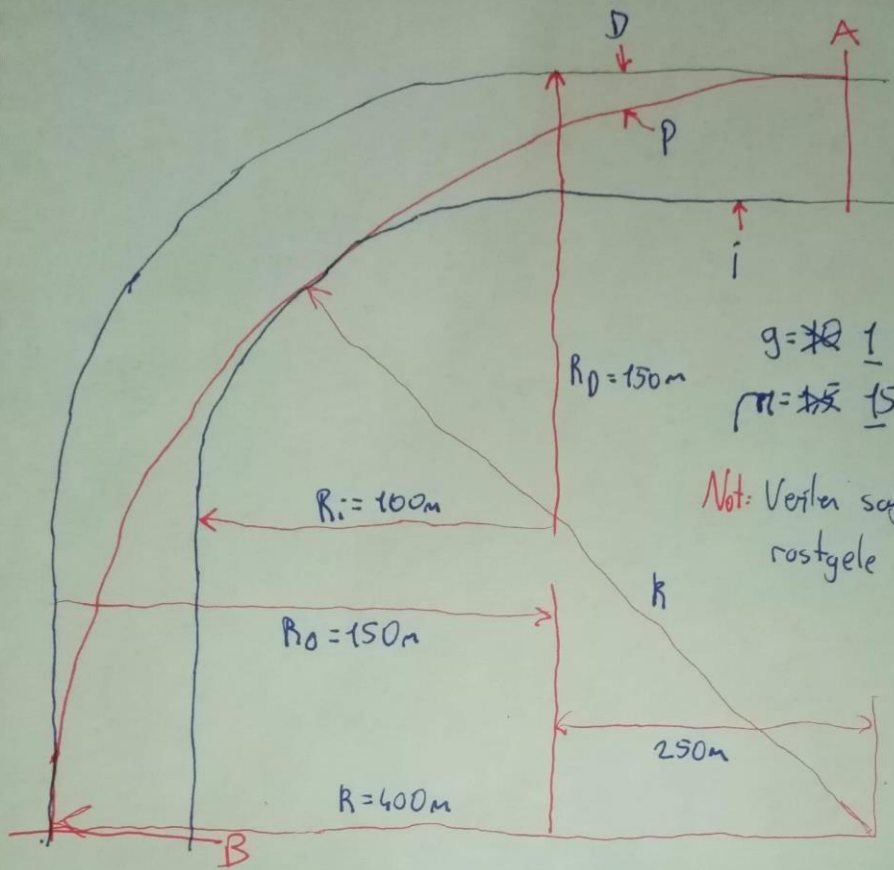 D
A
P
i
g= 1
R_D = 150m
m= 15
Not: Verilen
rastgele
R_i = 100m
R
R_D = 150m
250m
R = 400m
B